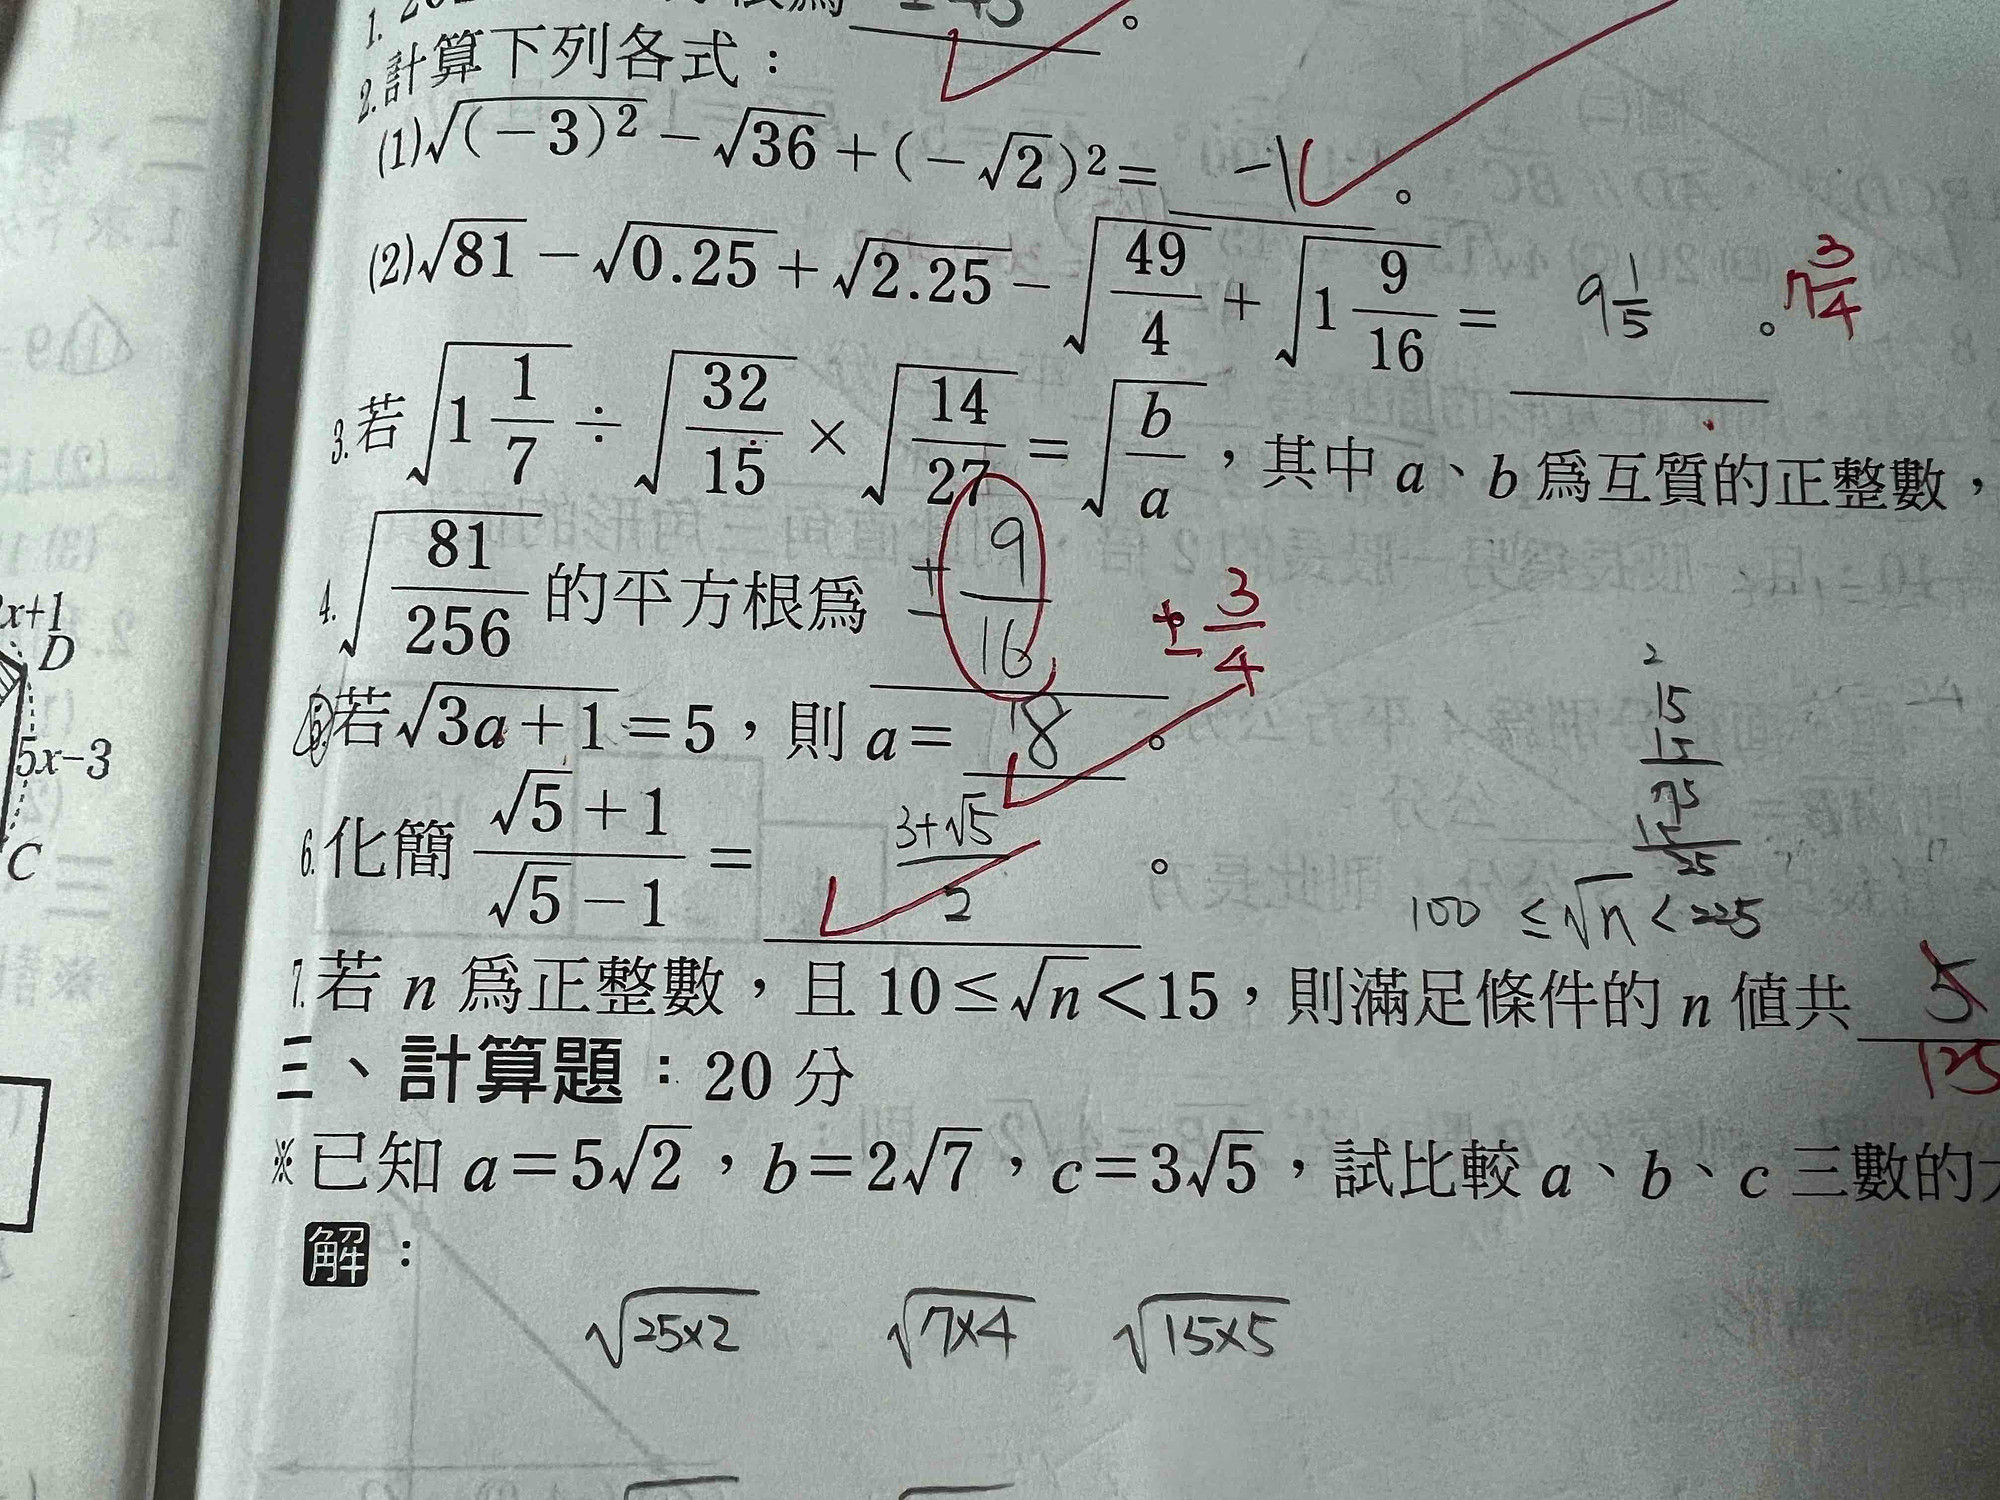 1.
2.計算下列各式：
(1)√(−3)² − √36 + (−√2)² = −1 。
(2)√81 − √0.25 + √2.25 − √(49/4) + √(1 9/16) = 9 1/5 。 7 3/4
3.若 √(1 1/7) ÷ √(32/15) × √(14/27) = √(b/a)，其中 a、b 爲互質的正整數，
4.√(81/256) 的平方根爲 ± 9/16 ± 3/4
5.若 √(3a+1) = 5，則 a = 8 。
6.化簡 (√5+1)/(√5−1) = (3+√5)/2 。
2
15
15
75
15
25
100 ≤ √n < 225
7.若 n 爲正整數，且 10 ≤ √n < 15，則滿足條件的 n 値共 5
125
三、計算題：20 分
※已知 a=5√2，b=2√7，c=3√5，試比較 a、b、c 三數的
解：
√25×2 √7×4 √15×5
2x+1
D
5x−3
C